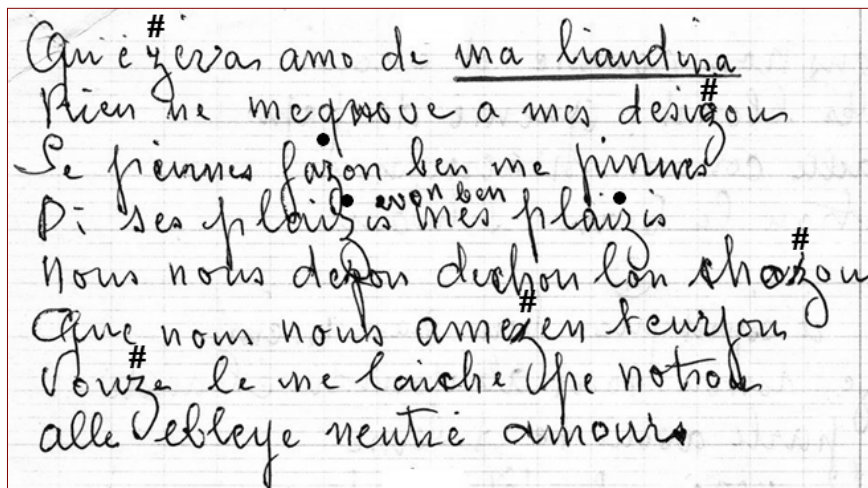 Qui é zévas amo de ma liaudina
Rien ne meqnove a mes désizous
Se piennes fazon ben me pinnes
even ben
Di ses plaizis mes plaizis
Nous nous depou dechou lon chozou
Que nous nous amezen teurjou
Vouze le ne laiche pe notrou
alle ebleye neutié amours